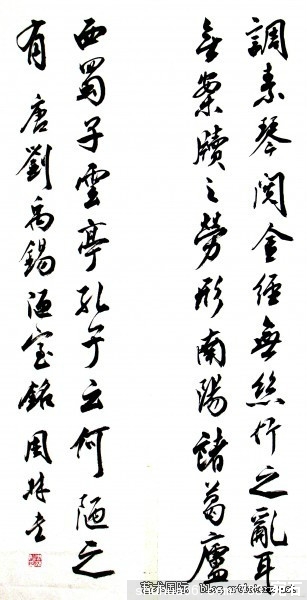 調素琴閱金經無絲竹之亂耳
無案牘之勞形南陽諸葛廬
西蜀子雲亭孔子云何陋之
有 唐劉禹錫陋室銘 周
艺术国际